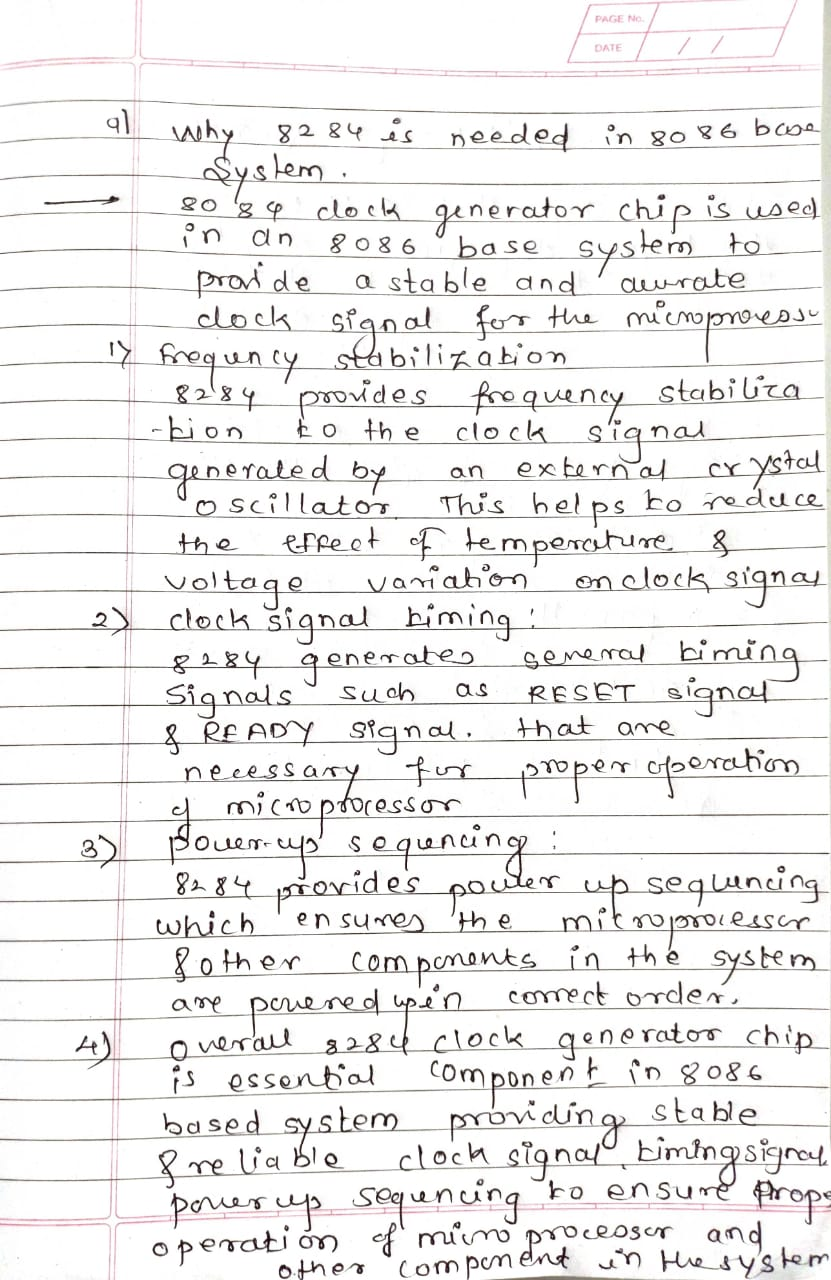 PAGE No.
DATE / /
a) Why 8284 is needed in 8086 base
System.
→ 8084 clock generator chip is used
in an 8086 base system to
provide a stable and accurate
clock signal for the microprocess
1) frequency stabilization
8284 provides frequency stabiliza
-tion to the clock signal
generated by an external crystal
oscillator. This helps to reduce
the effect of temperature &
voltage variation on clock signal
2) clock signal timing :
8284 generates several timing
Signals such as RESET signal
& READY signal. that are
necessary for proper operation
of microprocessor
3) Power-up sequencing :
8284 provides power up sequencing
which ensures the microprocessor
& other components in the system
are powered up in correct order.
4) Overall 8284 clock generator chip
is essential component in 8086
based system providing stable
& reliable clock signal, timing signal
power up sequencing to ensure prope
operation of micro processor and
other component in the system